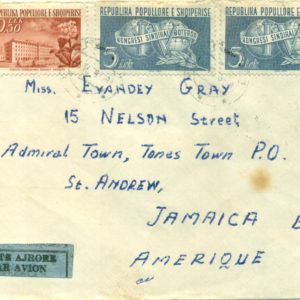 REPUBLIKA POPULLORE E SHQIPERISE
0.50
REPUBLIKA POPULLORE E SHQIPERISE
KONGRESI SINDIKAL BOTEROR
5 Lekë
REPUBLIKA POPULLORE E SHQIPERISE
KONGRESI SINDIKAL BOTEROR
5 Lekë
Miss. Evandey Gray
15 Nelson Street
Admiral Town, Jones Town P.O.
St. Andrew,
JAMAICA
AMERIQUE
AJRORE
AR AVION